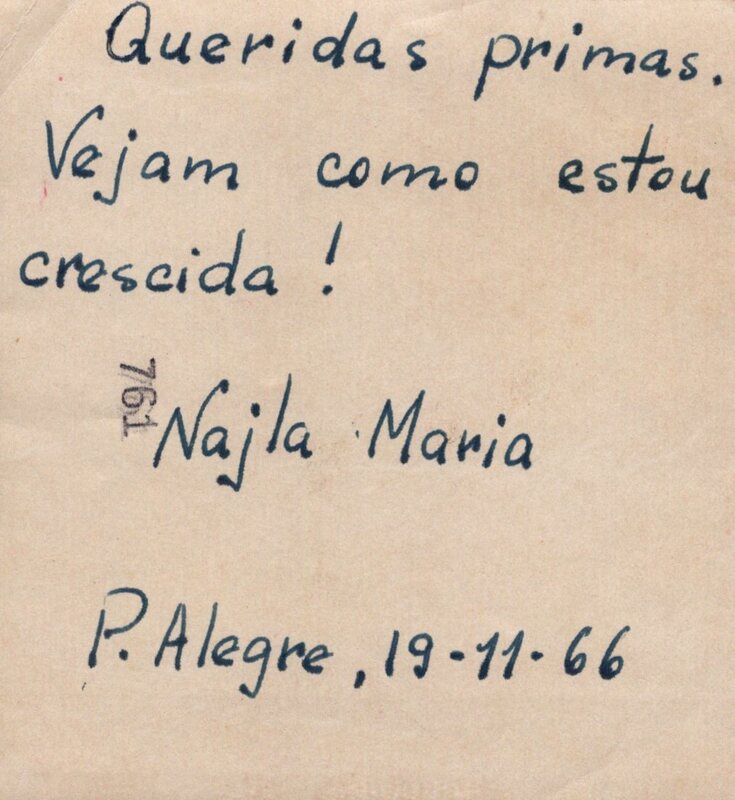 Queridas primas.
Vejam como estou
crescida!
761
Najla Maria
P. Alegre, 19-11-66